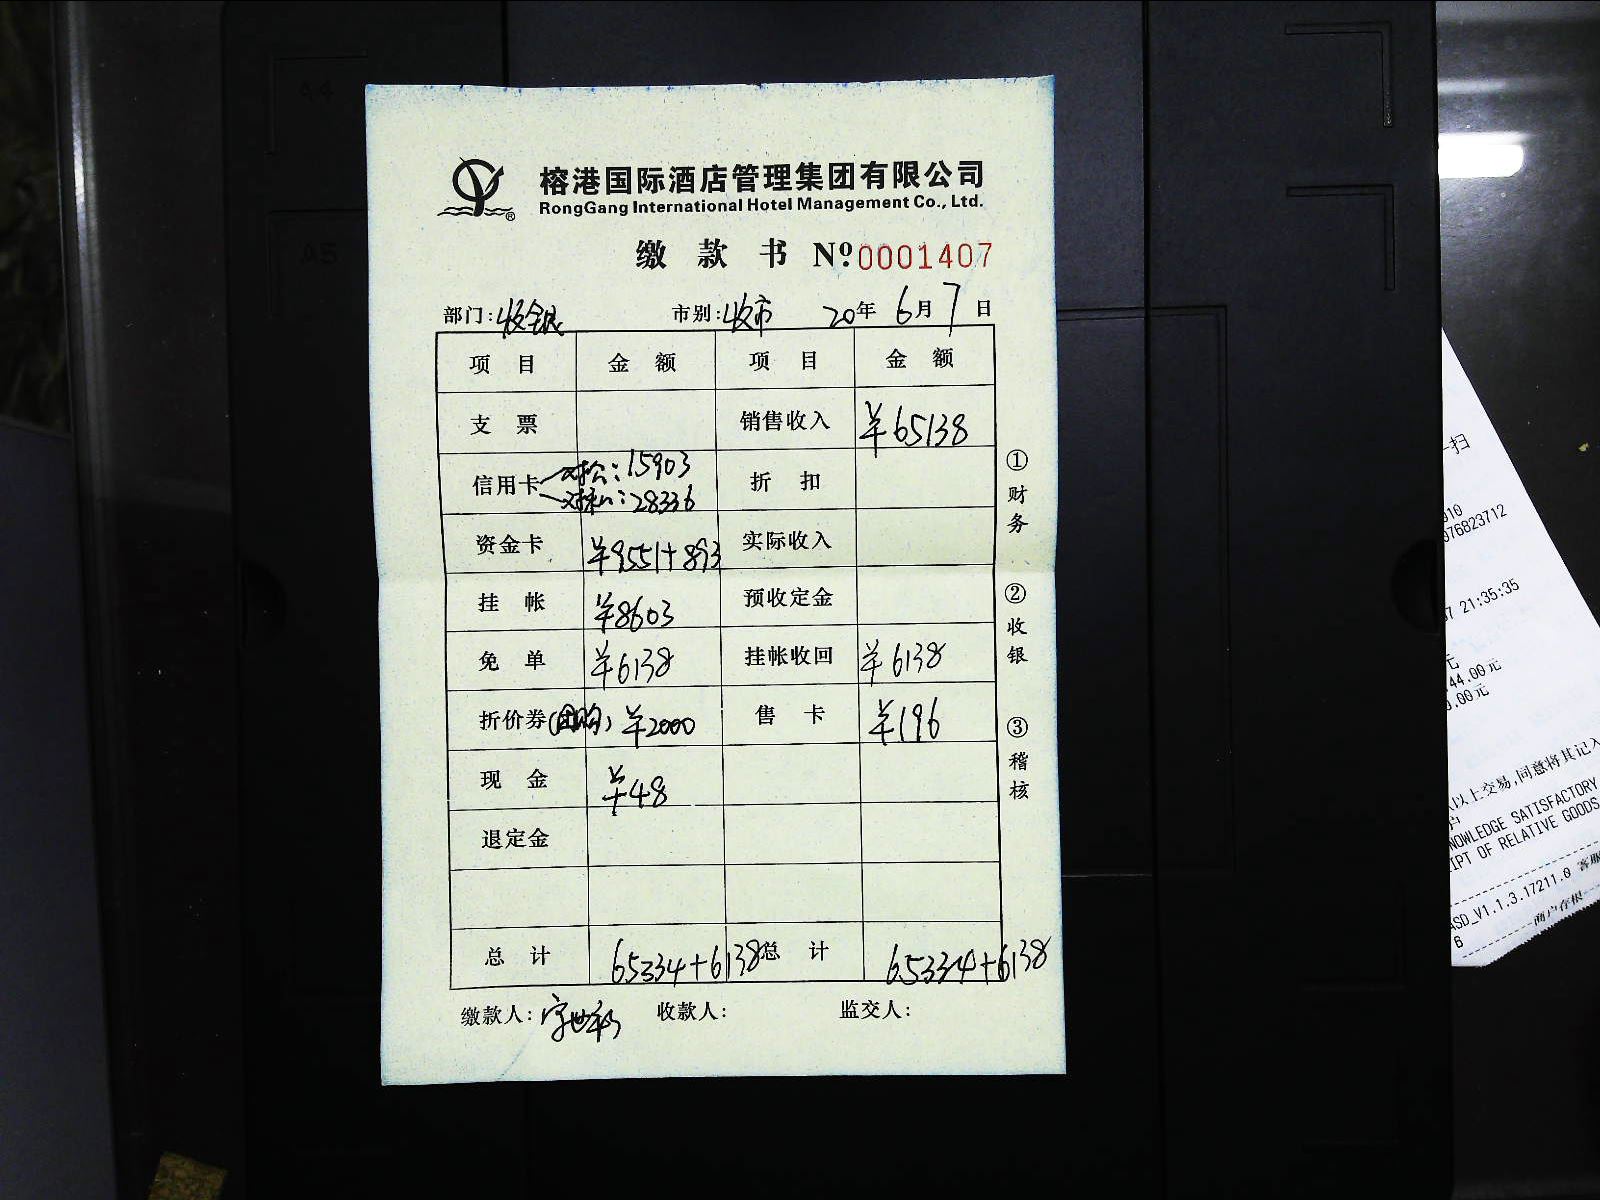 榕港国际酒店管理集团有限公司
RongGang International Hotel Management Co., Ltd.
缴款书 Nº 0001407
部门:收银 市别:收市 20年6月7日
项目 金额 项目 金额
支票 销售收入 ¥65138
信用卡 对公:15903 折扣
对私:28336
资金卡 ¥9551+893 实际收入
挂帐 ¥8603 预收定金
免单 ¥6138 挂帐收回 ¥6138
折价券(团购) ¥2000 售卡 ¥196
现金 ¥48
退定金
总计 65334+6138 总计 65334+6138
缴款人: 收款人: 监交人:
①财务
②收银
③稽核
A4
A5
扫
310
076823712
07 21:35:35
元
44.00元
.00元
以上交易,同意将其记入
NOWLEDGE SATISFACTORY
IPT OF RELATIVE GOODS
ASD_V1.1.3.17211.0 客服
6
商户存根